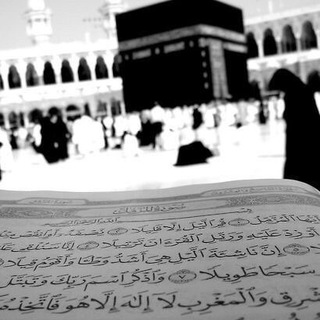 أَيُّهَا ٱلْمُزَّمِّلُ قُمِ ٱلَّيْلَ إِلَّا قَلِيلًا نِّصْفَهُۥٓ
أَوْ زِدْ عَلَيْهِ وَرَتِّلِ ٱلْقُرْءَانَ تَرْتِيلًا إِنَّا سَنُلْقِى
إِنَّ نَاشِئَةَ ٱلَّيْلِ هِىَ أَشَدُّ وَطْـًٔا وَأَقْوَمُ قِيلًا
سَبْحًا طَوِيلًا وَٱذْكُرِ ٱسْمَ رَبِّكَ وَتَبَتَّلْ
وَٱلْمَغْرِبِ لَآ إِلَٰهَ إِلَّا هُوَ فَٱتَّخِذْهُ